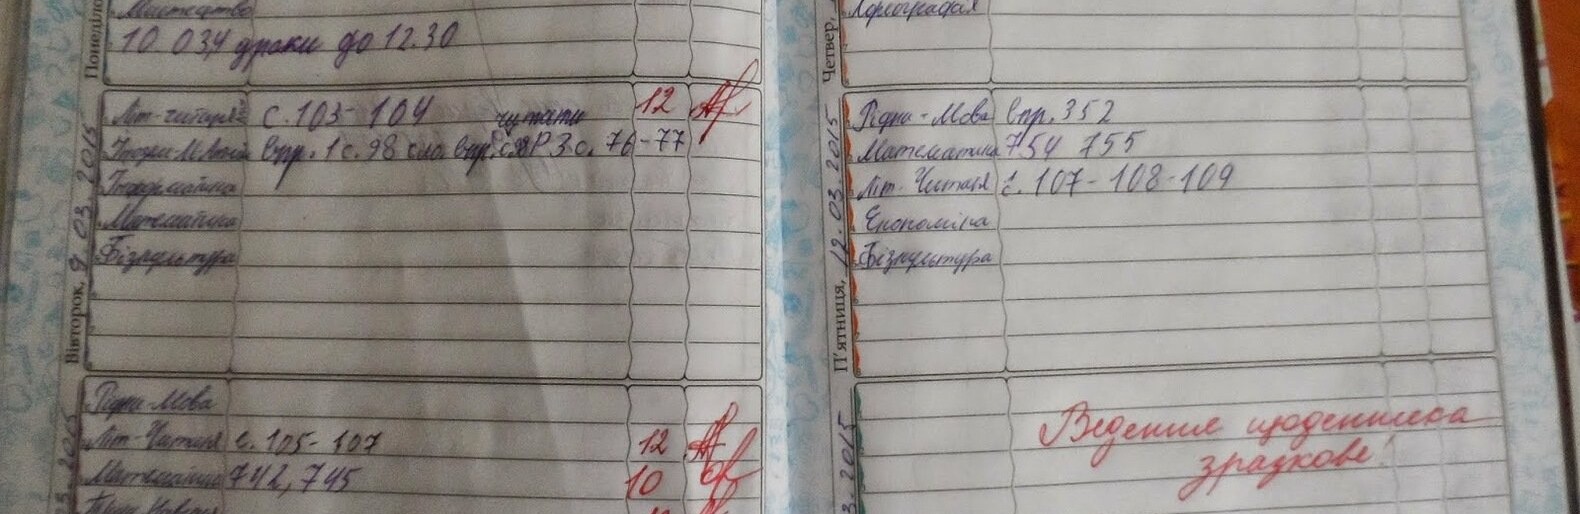 Мистецтво
10 03,4 уроки до 12.30
Понеділо
Літ-читаня с. 103-104 читати 12
впр. 1 с. 98 с. 76-77
Інформатика
Математика
Фізкультура
Вівторок, 9 03 2015
Рідна-Мова
Літ-Читаня с. 105-107 12
Математика 742, 745 10
3. 2015
Хореографія
Четвер,
Рідна-Мова впр. 352
Математика 754 755
Літ-Читаня с. 107-108-109
Економіка
Фізкультура
П'ятниця, 12. 03 2015
Ведення щоденника
зразкове!
3. 2015